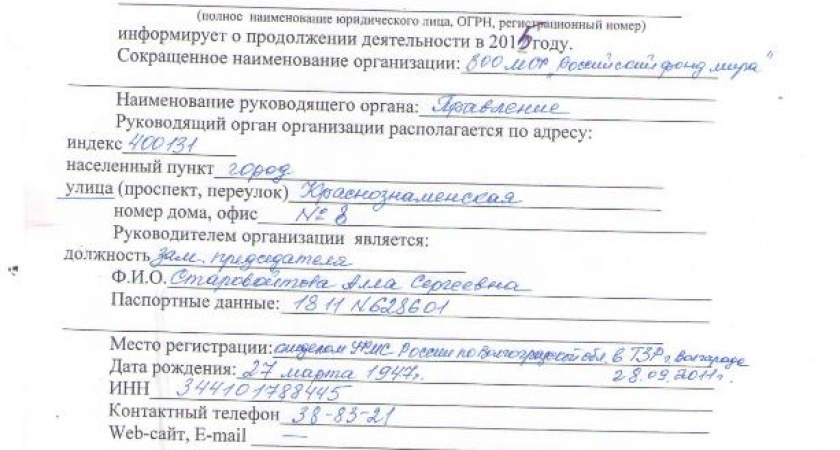 (полное наименование юридического лица, ОГРН, регистрационный номер)
информирует о продолжении деятельности в 2015 году.
Сокращенное наименование организации: ВОО МОФ "Российский фонд мира"
Наименование руководящего органа: Правление
Руководящий орган организации располагается по адресу:
индекс 400131
населенный пункт город
улица (проспект, переулок) Краснознаменская
номер дома, офис № 8
Руководителем организации является:
должность зам. председателя
Ф.И.О. Старовойтова Алла Сергеевна
Паспортные данные: 18 11 N628601
Место регистрации: отделом УФМС России по Волгоградской обл. в ТЗР г. Волгограда
28.09.2011г.
Дата рождения: 27 марта 1947г.
ИНН 344101788445
Контактный телефон 38-83-21
Web-сайт, E-mail —